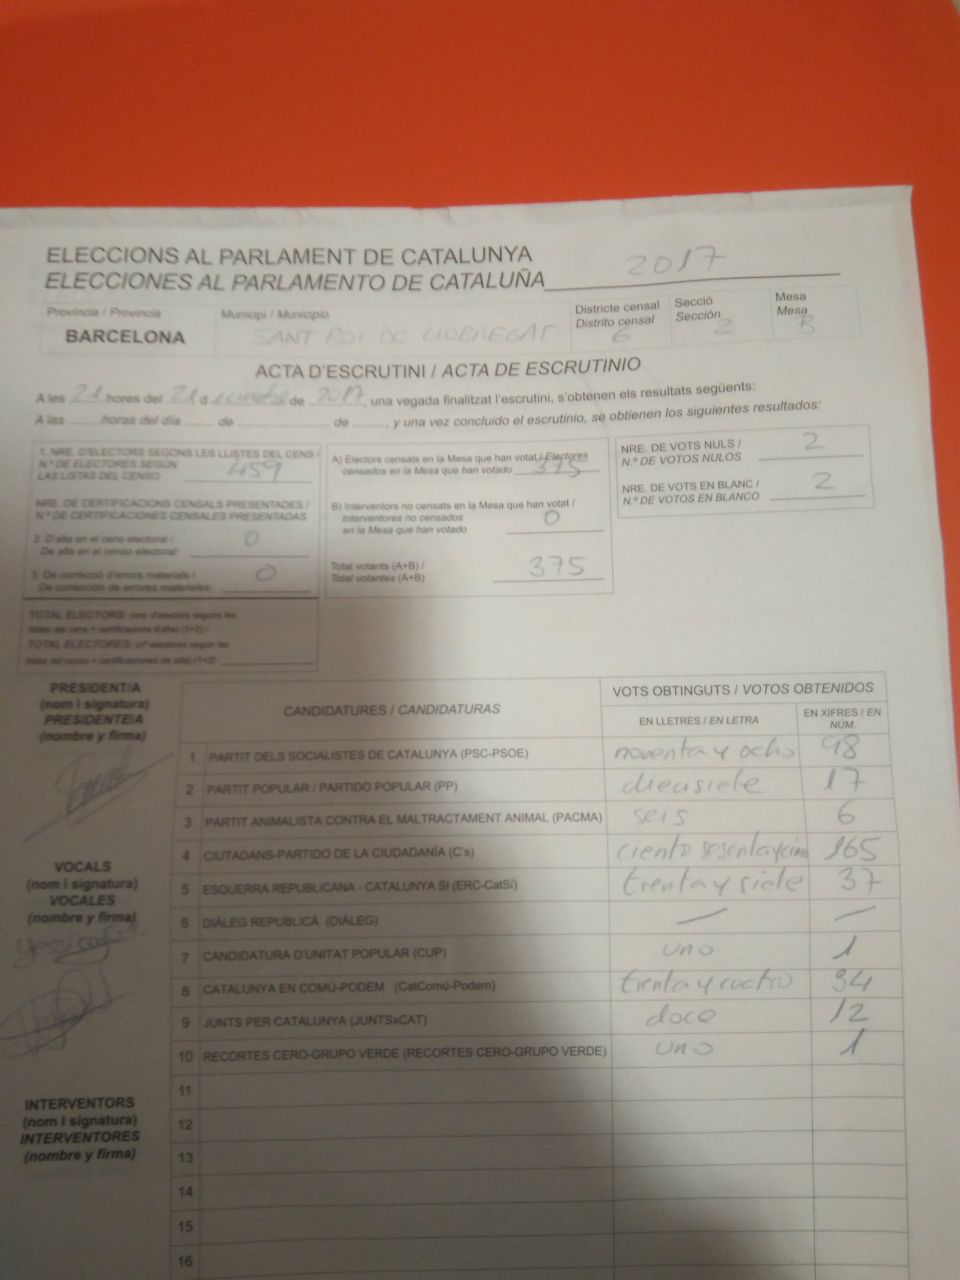 ELECCIONS AL PARLAMENT DE CATALUNYA
ELECCIONES AL PARLAMENTO DE CATALUÑA 2017
Província / Provincia
BARCELONA
Municipi / Municipio
SANT BOI DE LLOBREGAT
Districte censal
Distrito censal
6
Secció
Sección
2
Mesa
Mesa
B
ACTA D'ESCRUTINI / ACTA DE ESCRUTINIO
A les 21 hores del 21 d de 2017, una vegada finalitzat l'escrutini, s'obtenen els resultats següents:
A las ........ horas del día ........ de ........ de ........, y una vez concluido el escrutinio, se obtienen los siguientes resultados:
1. NRE. D'ELECTORS SEGONS LES LLISTES DEL CENS /
N.º DE ELECTORES SEGÚN
LAS LISTAS DEL CENSO 459
NRE. DE CERTIFICACIONS CENSALS PRESENTADES /
N.º DE CERTIFICACIONES CENSALES PRESENTADAS
2. D'alta en el cens electoral /
De alta en el censo electoral: 0
3. De correcció d'errors materials /
De corrección de errores materiales: 0
TOTAL ELECTORS: nre. d'electors segons les
llistes del cens + certificacions d'altes (1+2) /
TOTAL ELECTORES: nº electores según las
listas del censo + certificaciones de alta) (1+2)
A) Electors censats en la Mesa que han votat / Electores
censados en la Mesa que han votado 375
B) Interventors no censats en la Mesa que han votat /
Interventores no censados
en la Mesa que han votado 0
Total votants (A+B) /
Total votantes (A+B) 375
NRE. DE VOTS NULS /
N.º DE VOTOS NULOS 2
NRE. DE VOTS EN BLANC /
N.º DE VOTOS EN BLANCO 2
PRESIDENT/A
(nom i signatura)
PRESIDENTE/A
(nombre y firma)
VOCALS
(nom i signatura)
VOCALES
(nombre y firma)
INTERVENTORS
(nom i signatura)
INTERVENTORES
(nombre y firma)
CANDIDATURES / CANDIDATURAS
VOTS OBTINGUTS / VOTOS OBTENIDOS
EN LLETRES / EN LETRA
EN XIFRES / EN NÚM.
1 PARTIT DELS SOCIALISTES DE CATALUNYA (PSC-PSOE) noventa y ocho 98
2 PARTIT POPULAR / PARTIDO POPULAR (PP) diecisiete 17
3 PARTIT ANIMALISTA CONTRA EL MALTRACTAMENT ANIMAL (PACMA) seis 6
4 CIUTADANS-PARTIDO DE LA CIUDADANÍA (C's) ciento sesenta y cinco 165
5 ESQUERRA REPUBLICANA - CATALUNYA SÍ (ERC-CatSí) trenta y siete 37
6 DIÀLEG REPUBLICÀ (DIÀLEG) — —
7 CANDIDATURA D'UNITAT POPULAR (CUP) uno 1
8 CATALUNYA EN COMÚ-PODEM (CatComú-Podem) trenta y cuatro 34
9 JUNTS PER CATALUNYA (JUNTSxCAT) doce 12
10 RECORTES CERO-GRUPO VERDE (RECORTES CERO-GRUPO VERDE) uno 1
11
12
13
14
15
16